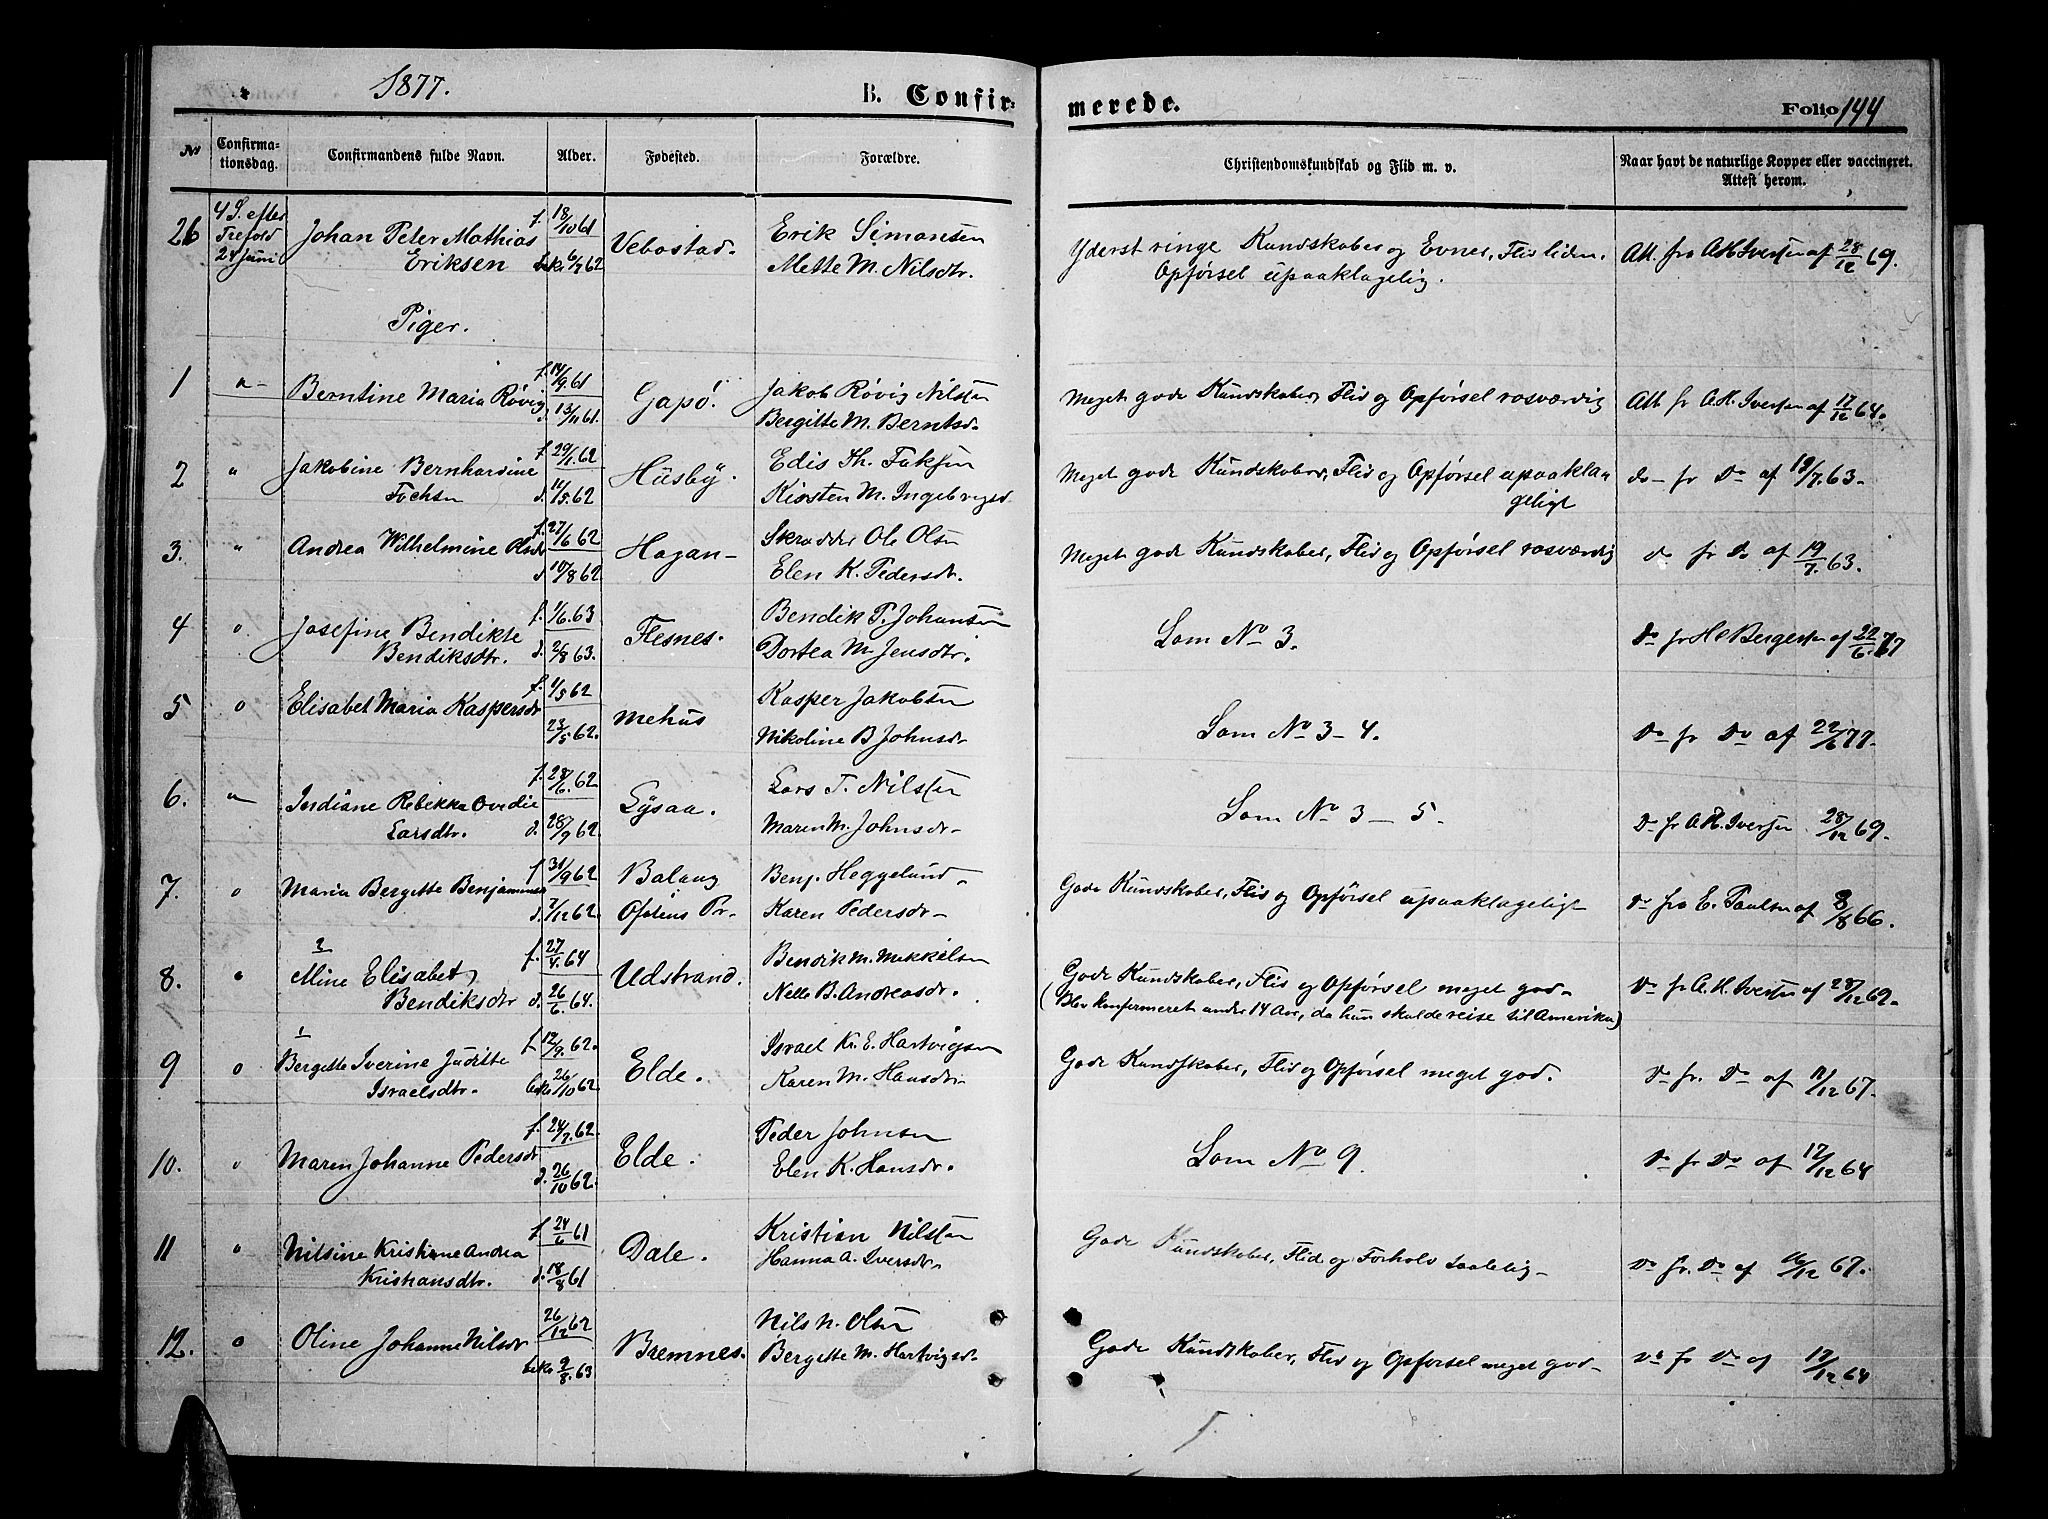 1877.
B. Confir-
merede.
Folio 144
No
Confirma-
tionsdag.
Confirmandens fulde Navn.
Alder.
Fødested.
Forældre.
Christendomskundskab og Flid m. v.
Naar havt de naturlige Kopper eller vaccineret.
Attest herom.
26
4 S. efter
Trefold
24 Juni
Johan Peter Mathias
Eriksen
f. 18/10 61
6/7 62
Vebostad.
Erik Simonsen
Mette M. Nilsdtr.
Yderst ringe Kundskaber og Evner, Flid liden.
Opførsel upaaklagelig.
Att. fra A H Iversen af 28/12 69.
Piger.
1
Berntine Maria Røvig
f. 14/9 61
d. 13/11 61.
Gapø.
Jakob Røvig Nilsen
Bergitte M. Berntsd.
Meget gode Kundskaber, Flid og Opførsel rosværdig
Att fr A. H. Iversen af 17/12 64.
2
"
Jakobine Bernhardine
Fochsen
f. 29/1 62
d. 11/5 62
Hüsby.
Edis Th. Foksen
Kirsten M. Ingebrigtsd.
Meget gode Kundskaber, Flid og Opførsel upaakla-
geligt
do - fr Do af 19/7 63.
3.
"
Andrea Wilhelmine Olsdr
f. 27/6 62
d. 10/8 62
Hagan-
Skrædder Ole Olsen
Elen K. Pedersdr.
Meget gode Kundskaber, Flid og Opførsel rosværdig
do fr Do af 19/7. 63.
4
Josefine Bendikte
Bendiksdtr.
f. 1/6. 63
d. 26/8 63.
Flesnes.
Bendik P. Johansen
Dortea M. Jensdtr.
Som No 3.
Do fr H C Bergersen af 22/6. 77
5
Elisabet Maria Kaspersdr
f. 1/5 62
23/5 62.
Mehus
Kasper Jakobsen
Nikoline B Johnsdr
Som No 3-4.
Do fr Do af 22/6 77.
6.
Indiane Rebekka Ovedie
Larsdtr.
f. 28/6. 62
d. 28/9 62.
Lysaa.
Lars T. Nilsen
Maren M. Johnsdr.
Som No 3-5.
Do fr A H. Iversen 28/12 69.
7.
Maria Bergitte Benjaminsd
f. 31/9 62
d. 7/12 62.
Balang
Ofotens Pr.
Benj. Heggelund
Karen Pedersdr
Gode Kundskaber, Flid og Opførsel upaaklageligt
Do fra E. Paulsen af 8/8 66.
8.
2
Mine Elisabet
Bendiksdtr
f. 27/4. 64
d. 26/6. 64.
Udstrand.
Bendik M. Mekkelsen
Nelle B. Andreasdr.
Gode Kundskaber, Flid og Opførsel meget god-
(Blev konfirmeret under 14 Aar, da hun skulde reise til Amerika)
Do fr A. H. Iversen af 28/12 69.
9
1
Bergitte Iverine Juditte
Israelsdtr.
f 12/9. 62.
26/10 62
Elde.
Israel Kr. E. Hartvigsen
Karen M. Hansdr
Gode Kundskaber, Flid og Opførsel meget god.
Do fr. Do af 11/12 67.
10.
Maren Johanne Pedersdr
f. 24/7. 62.
d. 26/10 62.
Elde.
Peder Johnsen
Elen K. Hansdr.
Som No 9.
Do fr Do af 17/12 64
11
Nilsine Kristiane Andrea
Kristiansdtr.
f. 24/6 61
d. 18/8 61
Dale.
Kristian Nilsen
Hanna A. Iversdr.
Gode Kundskaber, Flid og Forhold saaledig-
Do fr. Do af 16/12 67.
12.
Oline Johanne Nilsdr
26/12 62
9/8. 63
Bremnes.
Nils N. Olsen
Bergitte M. Hartvigsd.
Gode Kundskaber, Flid og Opførsel meget god-
Do fr Do af 17/12 64